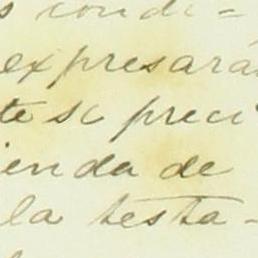 s condi-
expresará
te si preci
ienda de
la testa-